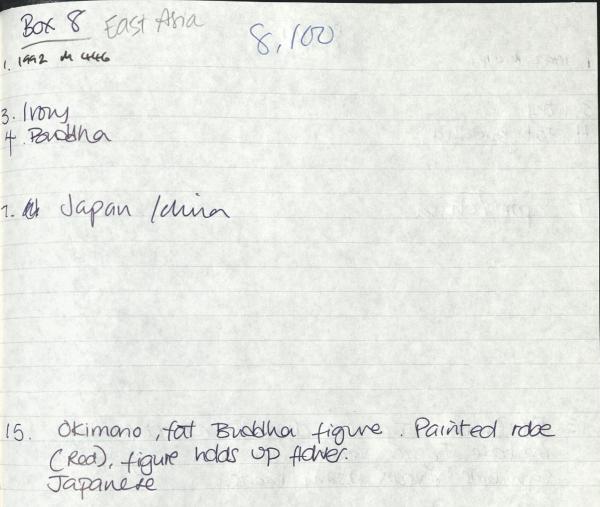 Box 8 East Asia
8,100
1. 1992 M 446
3. Ivory
4. Buddha
7. Japan / China
15. Okimono, fat Buddha figure. Painted robe
(Red), figure holds up flower.
Japanese